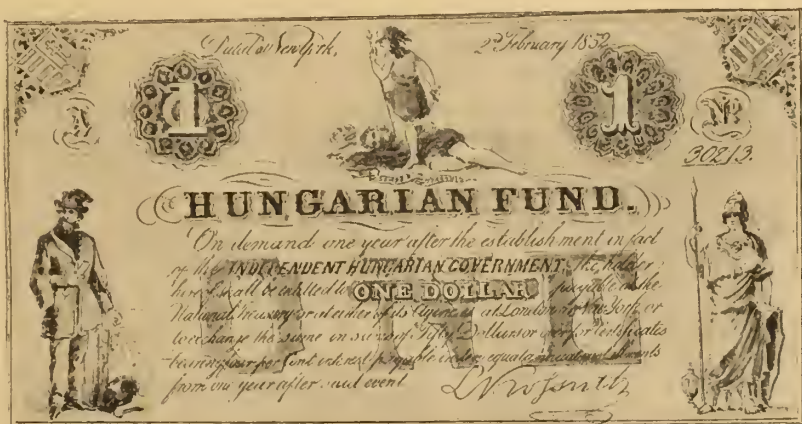 Dated at New York, 2d February 1852
1 1
No
30213.
HUNGARIAN FUND.
On demand one year after the establishment in fact
of the INDEPENDENT HUNGARIAN GOVERNMENT. The holder
hereof shall be entitled to ONE DOLLAR payable at the
National Treasury or at either of its Agencies at London or New York or
to exchange the same in sums of Fifty Dollars or over for certificates
bearing four per Cent interest payable in ten equal annual instalments
from one year after said event